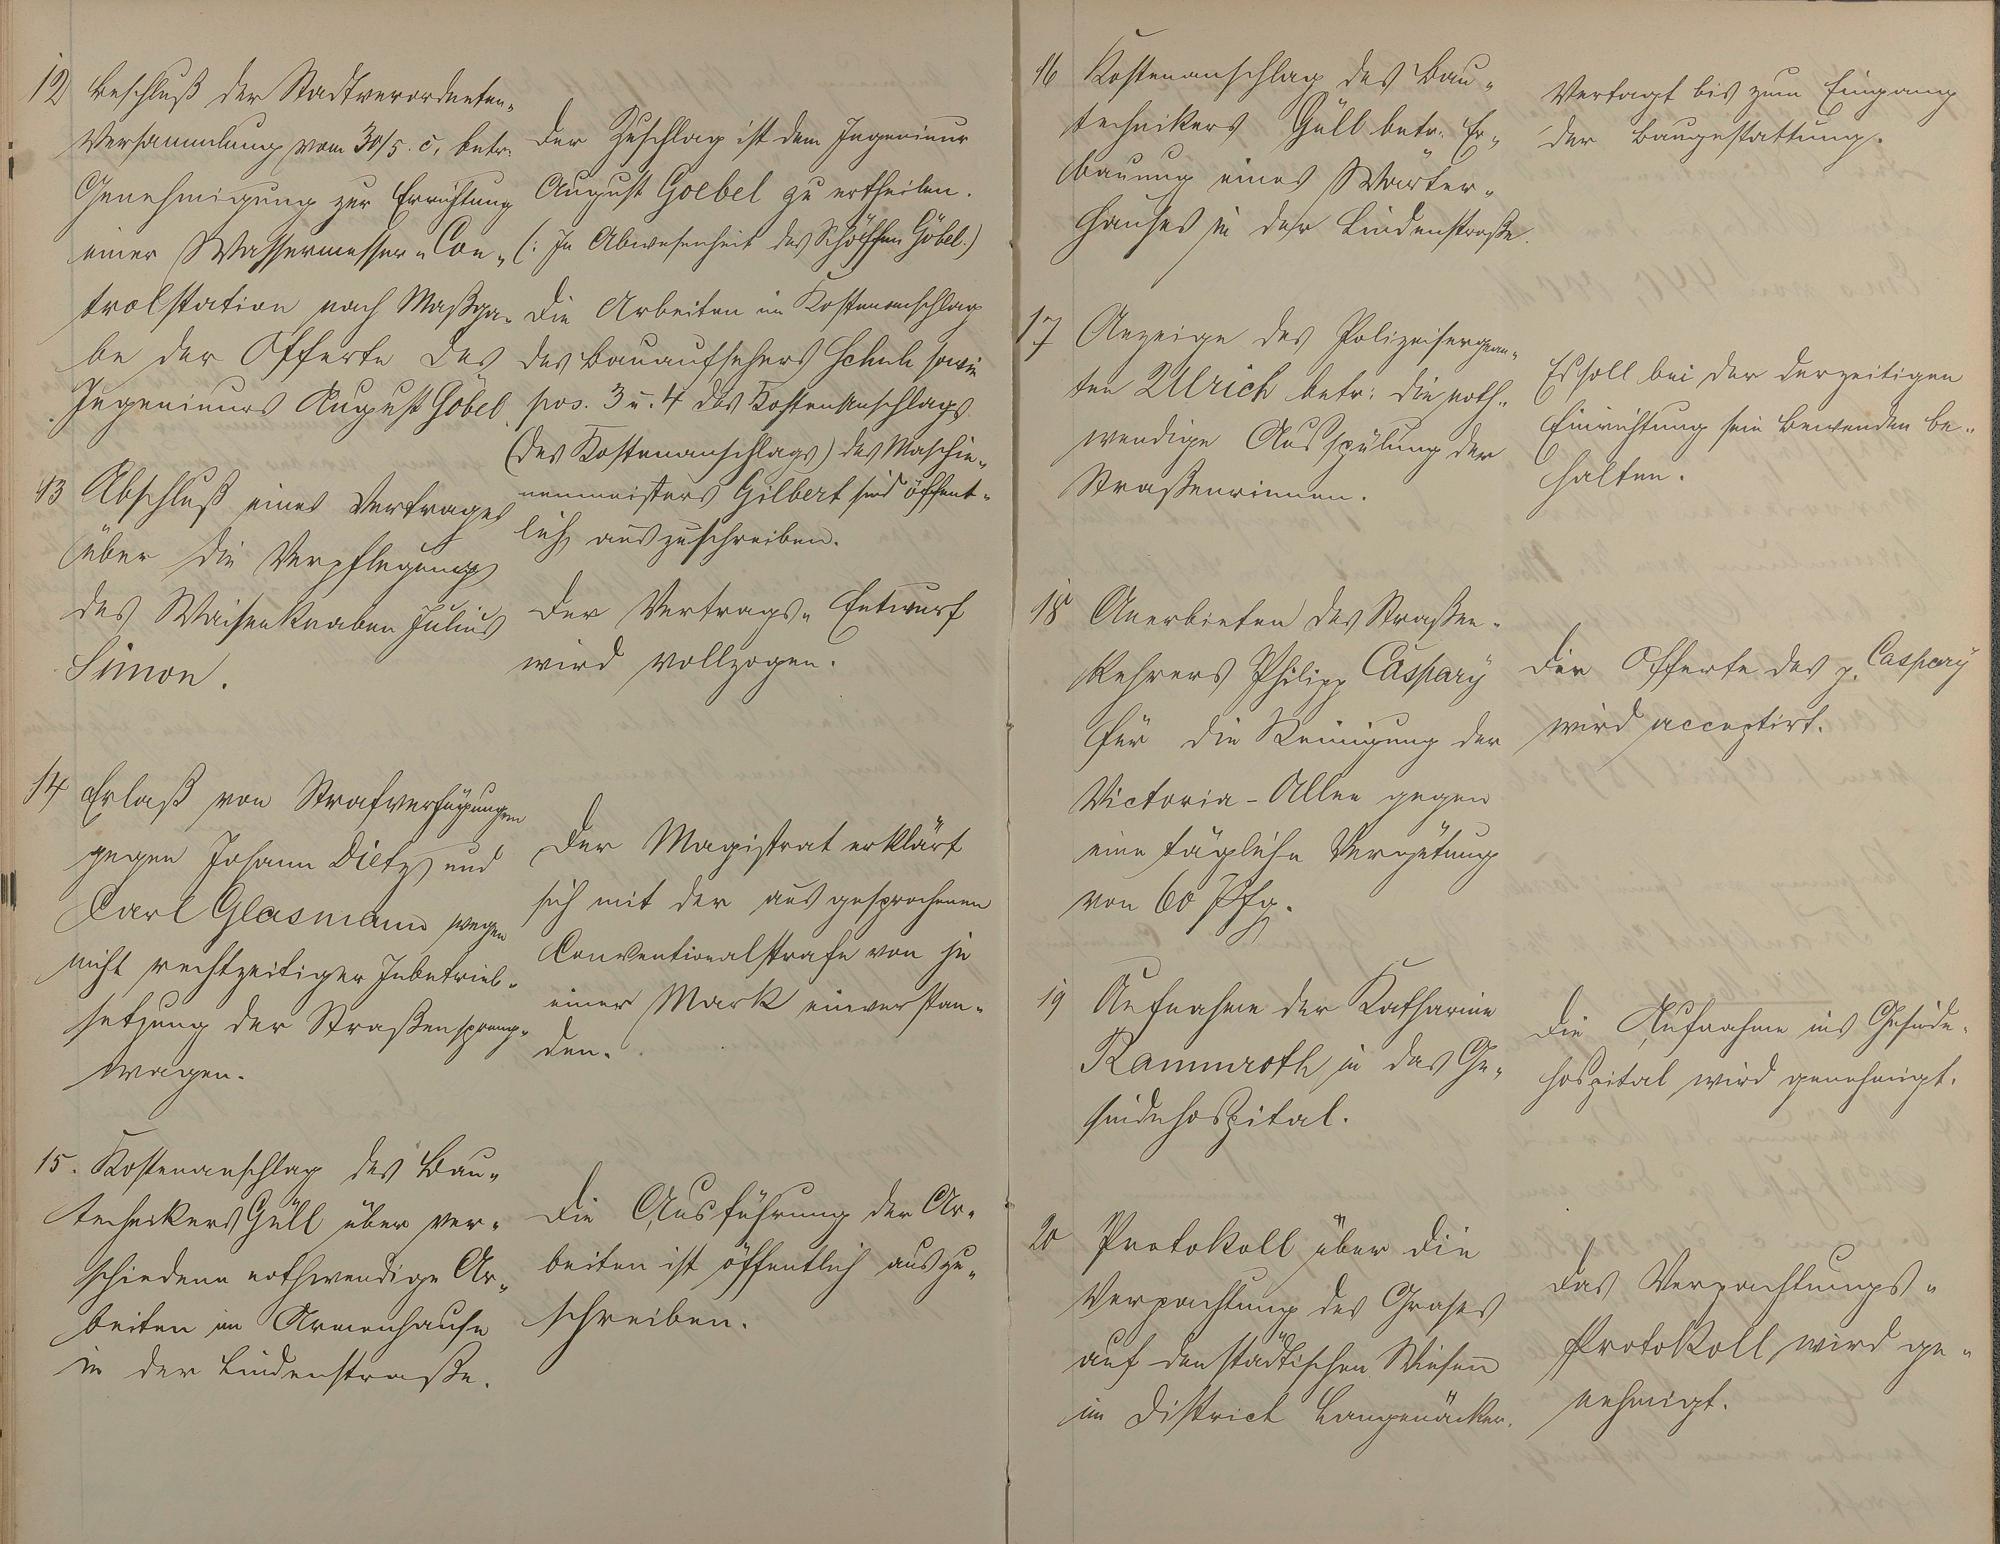 12 Beschluß der Stadtverordneten-
Versammlung vom 30/5. c. betr.
Genehmigung zur Errichtung
einer Wassermesser-Con-
trolstation nach Maßga-
be der Offerte des
Ingenieurs August Göbel.
Der Zuschlag ist dem Ingenieur
August Goebel zu ertheilen.
(: In Abwesenheit des Schöffen Göbel.)
Die Arbeiten im Kostenanschlag
des Bauaufsehers Schuh sowie
pos. 3 u. 4 des Kostenanschlags
(des Kostenanschlags) des Maschi-
nenmeisters Gilbert sind öffent-
lich auszuschreiben.
13 Abschluß eines Vertrages
über die Verpflegung
des Waisenknaben Julius
Simon.
Der Vertrags-Entwurf
wird vollzogen.
14 Erlaß von Strafverfügungen
gegen Johann Dietz und
Carl Glasmann wegen
nicht rechtzeitiger Inbetrieb-
setzung der Straßenspreng-
wagen.
Der Magistrat erklärt
sich mit der ausgesprochenen
Conventionalstrafe von je
einer Mark einverstan-
den.
15. Kostenanschlag des Bau-
technikers Güll über ver-
schiedene nothwendige Ar-
beiten im Armenhause
in der Lindenstraße.
Die Ausführung der Ar-
beiten ist öffentlich auszu-
schreiben.
16 Kostenanschlag des Bau-
technikers Güll betr. Er-
bauung eines Wärter-
hauses in der Lindenstraße.
Vertagt bis zum Eingang
der Baugestattung.
17 Anzeige des Polizeisergean-
ten Ulrich betr. die noth-
wendige Ausspülung der
Straßenrinnen.
Es soll bei der derzeitigen
Einrichtung sein Bewenden be-
halten.
18 Anerbieten des Straßen-
kehrers Philipp Caspary
für die Reinigung der
Victoria-Allee gegen
eine tägliche Vergütung
von 60 Pfg.
Die Offerte des p. Caspary
wird acceptirt.
19 Aufnahme der Katharine
Rammroth in das Ge-
sindehospital.
Die Aufnahme ins Gesinde-
hospital wird genehmigt.
20 Protokoll über die
Verpachtung des Grases
auf den städtischen Wiesen
im District Langenäcker.
Das Verpachtungs-
Protokoll wird ge-
nehmigt.